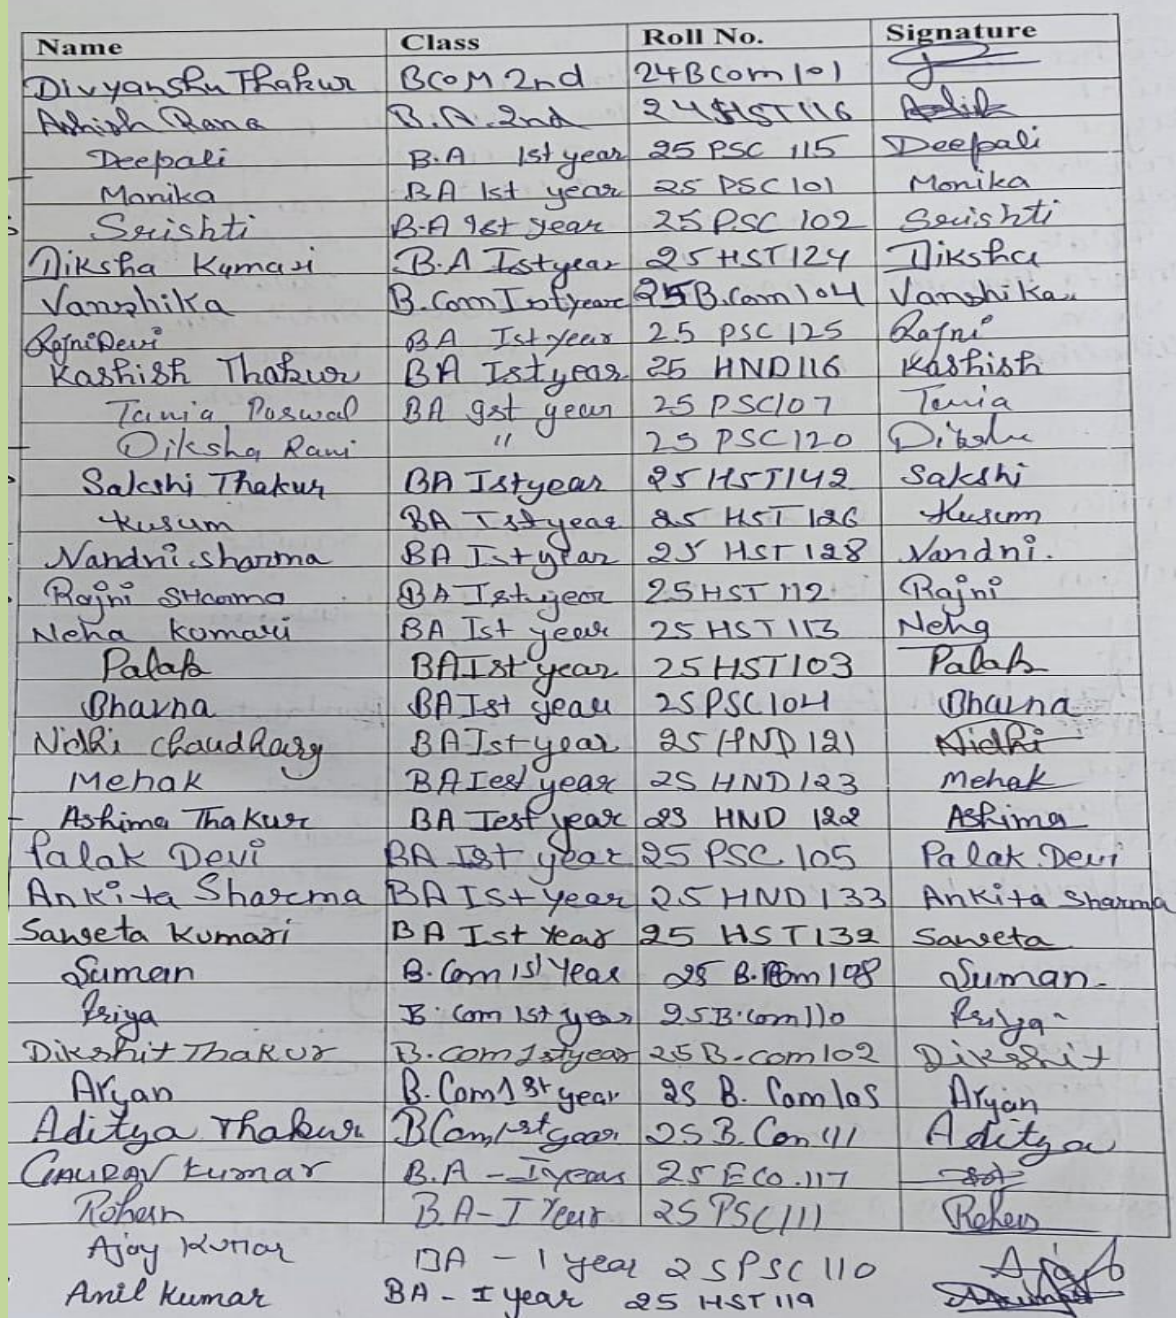 Name Class Roll No. Signature
Divyanshu Thakur BCOM 2nd 24BCom101
Ashish Rana B.A. 2nd 24HST116 Ashish
Deepali B.A 1st year 25 PSC 115 Deepali
Monika BA 1st year 25 PSC 101 Monika
Srishti B.A Ist year 25 PSC 102 Srishti
Diksha Kumari B.A Ist year 25 HST 124 Diksha
Vanshika B.Com Ist year 25B.Com 104 Vanshika
Rajni Devi BA Ist year 25 PSC 125 Rajni
Kashish Thakur BA Ist year 25 HND 116 Kashish
Tania Poswal BA Ist year 25 PSC107 Tania
Diksha Rani " 25 PSC 120 Diksha
Sakshi Thakur BA Ist year 25 HST142 Sakshi
Kusum BA Ist year 25 HST 126 Kusum
Nandni Sharma BA Ist year 25 HST 128 Nandni.
Rajni SHarma BA Ist year 25HST 112 Rajni
Neha Komari BA Ist year 25 HST 113 Neha
Palak BA Ist year 25 HST103 Palak
Bhavna BA Ist year 25PSC104 Bhavna
Nidhi Chaudhary BA Ist year 25 HND 121 Nidhi
Mehak BA Iest year 25 HND 123 Mehak
Ashima Thakur BA Iest year 25 HND 122 Ashima
Palak Devi BA Ist year 25 PSC 105 Palak Devi
Ankita Sharma BA Ist year 25 HND 133 Ankita Sharma
Saweta Kumari BA Ist Year 25 HST132 Saweta
Suman B.Com 1st Year 25 B.Com 108 Suman.
Priya B.Com 1st year 25B.Com110 Priya
Dikshit Thakur B.com 1st year 25B.com102 Dikshit
Aryan B.Com 1st year 25 B.Com105 Aryan
Aditya Thakur BCom 1st year 25B.Com 111 Aditya
GAURAV Kumar B.A - I year 25 ECO.117
Rohan B.A-I Year 25 PSC111 Rohan
Ajay Kumar BA - 1 year 25PSC 110 Ajay
Anil Kumar BA - I year 25 HST 119